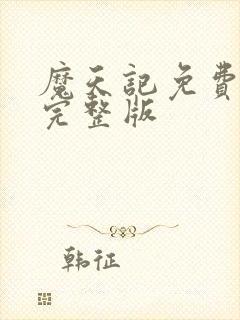 魔天記免費
完整版
韩征